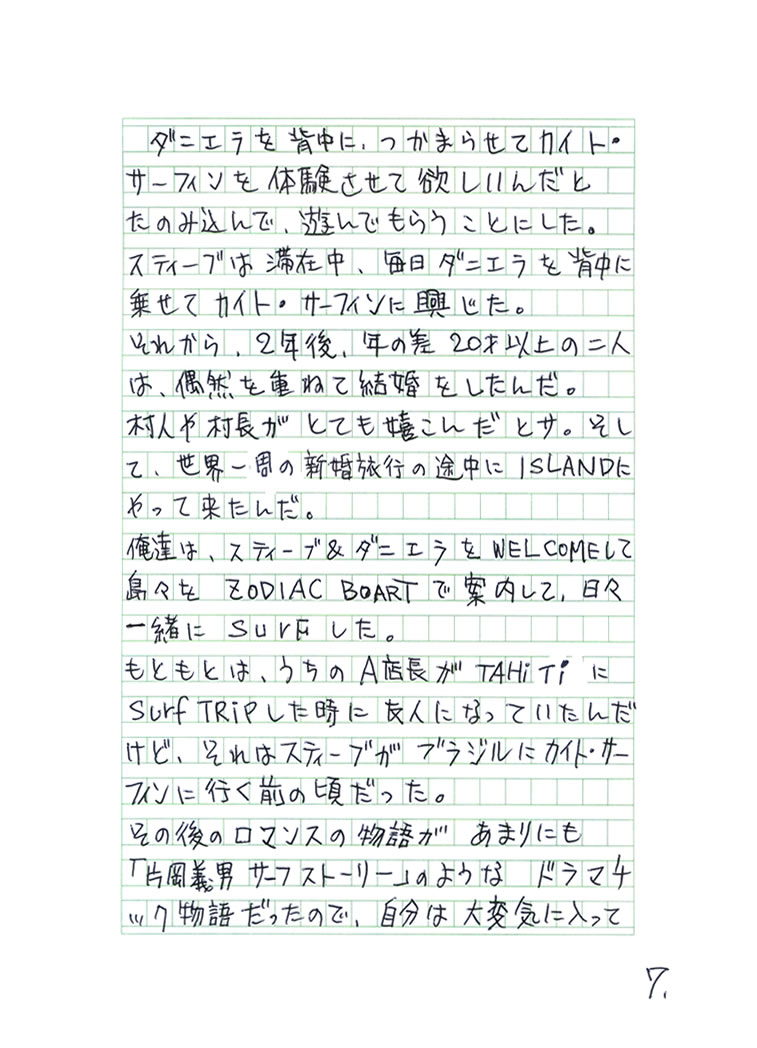 ダニエラを背中に、つかまらせてカイト・
サーフィンを体験させて欲しいんだと
たのみ込んで、遊んでもらうことにした。
スティーブは滞在中、毎日ダニエラを背中に
乗せてカイト・サーフィンに興じた。
それから、2年後、年の差20才以上の二人
は、偶然を重ねて結婚をしたんだ。
村人や村長がとても嬉こんだとサ。そし
て、世界一周の新婚旅行の途中にISLANDに
やって来たんだ。
俺達は、スティーブ&ダニエラをWELCOMEして
島々をZODIAC BOARTで案内して、日々
一緒にSURFした。
もともとは、うちのA店長がTAHiTiに
Surf TRiPした時に友人になっていたんだ
けど、それはスティーブがブラジルにカイト・サー
フィンに行く前の頃だった。
その後のロマンスの物語があまりにも
「片岡義男サーフストーリー」のようなドラマチ
ック物語だったので、自分は大変気に入って
7.